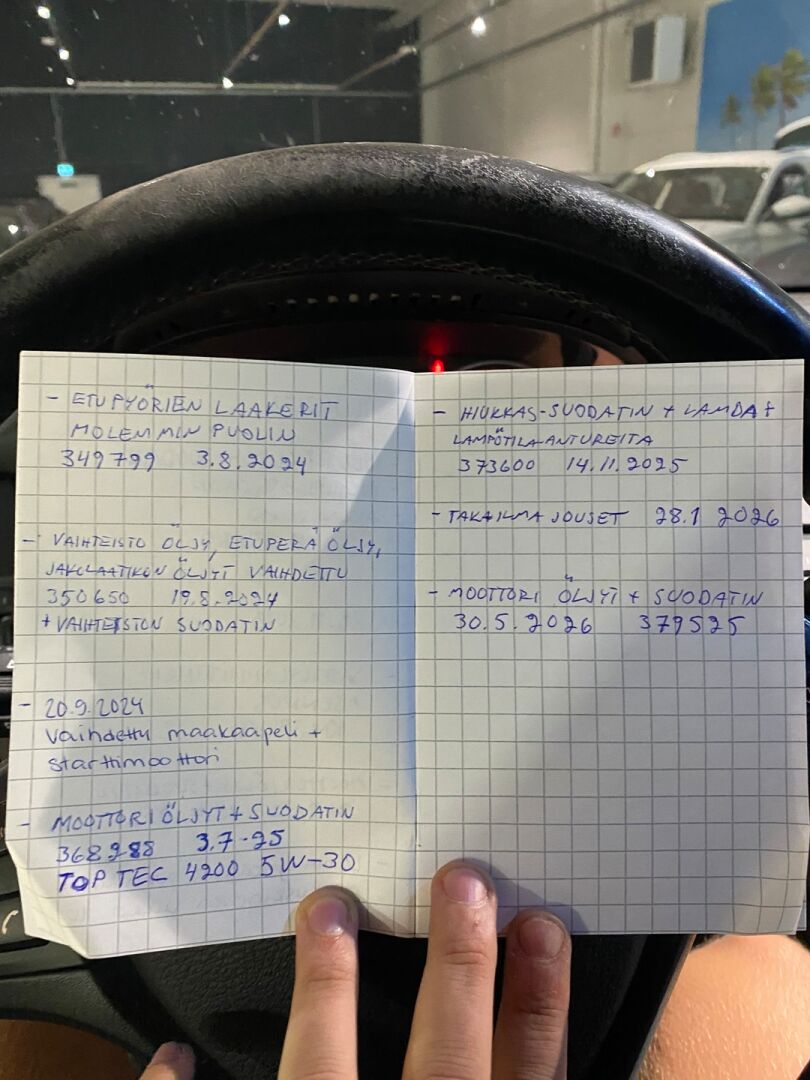 - ETUPYÖRIEN LAAKERIT
MOLEMMIN PUOLIN
349799 3.8.2024
- VAIHTEISTO ÖLJY, ETUPERÄ ÖLJY,
JAKOLAATIKON ÖLJYT VAIHDETTU
350650 19.8.2024
+ VAIHTEISTON SUODATIN
- 20.9.2024
vaihdettu maakaapeli +
starttimoottori
- MOOTTORI ÖLJYT + SUODATIN
368288 3.7.25
TOP TEC 4200 5W-30
- HIUKKAS-SUODATIN + LAMDA +
LÄMPÖTILA-ANTUREITA
373600 14.11.2025
- TAKAILMAJOUSET 28.1 2026
- MOOTTORI ÖLJYT + SUODATIN
30.5.2026 379525